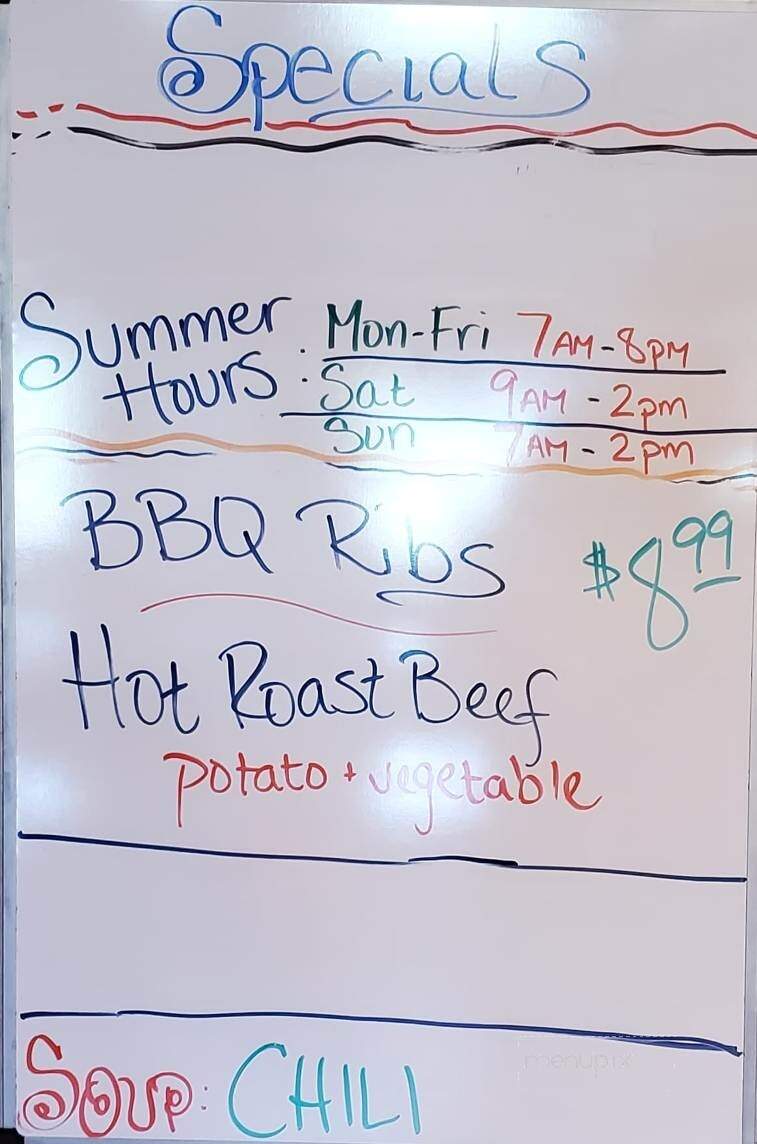 Specials
Summer Hours
: Mon-Fri 7AM-8PM
Sat 9AM - 2pm
Sun 7AM - 2pm
BBQ Ribs $8.99
Hot Roast Beef
potato + vegetable
Soup: CHILI
menupix